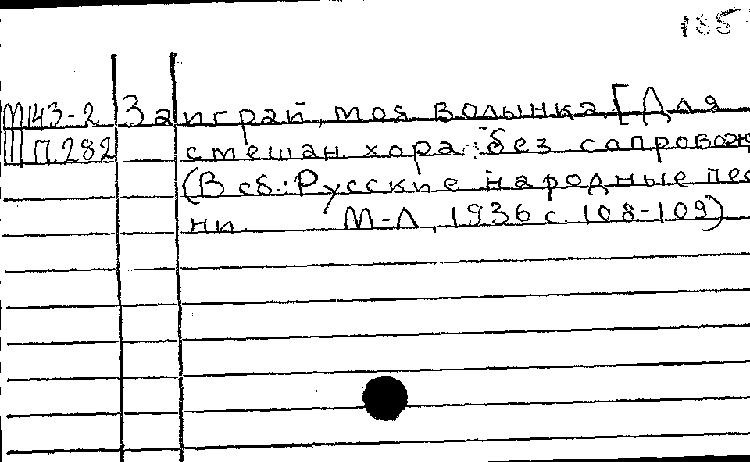 185
М143-2 Заиграй, моя волынка [Для
Ш П282 смешан. хора без сапровож
(В сб.: Русские народные пес
ни. М-Л, 1936 с. 108-109)